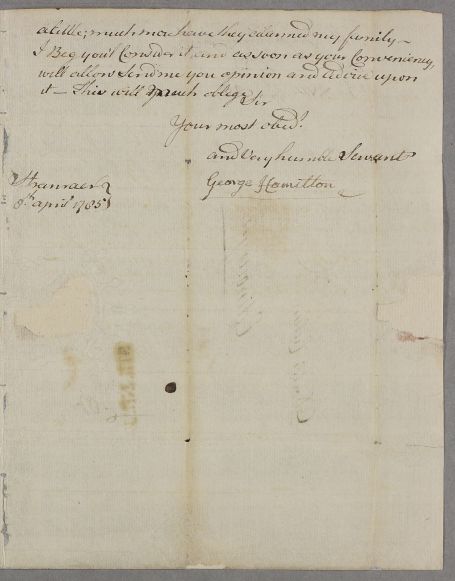 a little; much more have they alarmed my family –
I Beg you'l Consider it, and as soon as your Conveniency,
will allow Send me you opinion and advice upon
it – This will much oblige Sir
Your most obedt.
and Very humble Servant
George Hamilton
Stranraer
8th april 1785